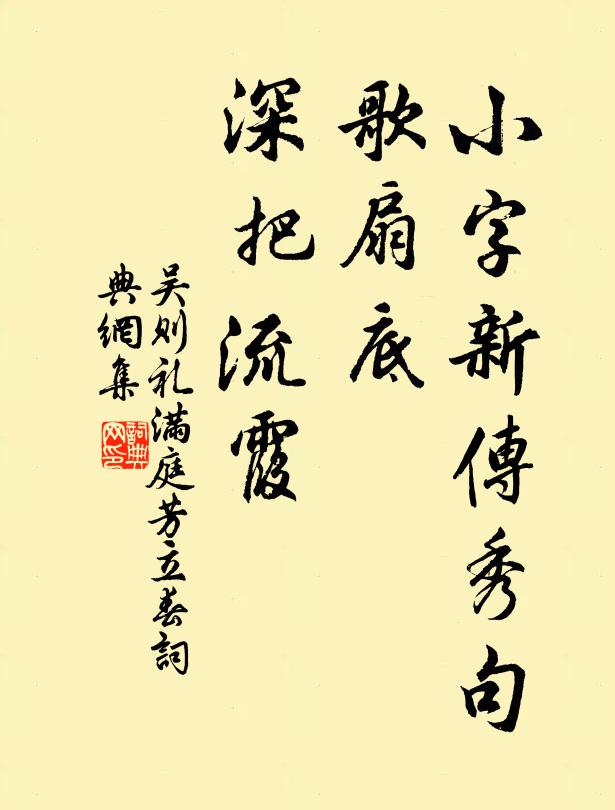 小字新傳秀句
歌扇底
深把流霞
吴则礼满庭芳立春詞
典網集
詞典網印